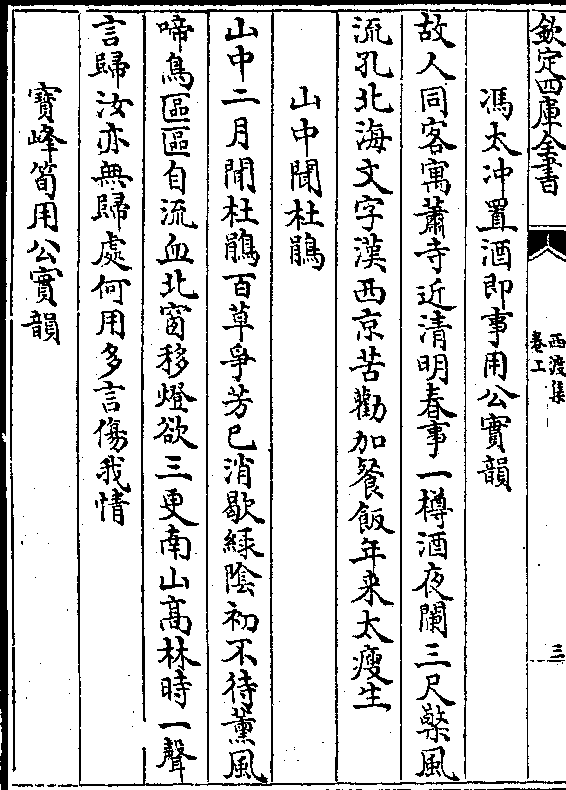 欽定四庫全書
西渡集
卷上
三
馮太冲置酒即事用公實韻
故人同客寓蕭寺近清明春事一樽酒夜闌三尺檠風
流孔北海文字漢西京苦勸加餐飯年来太瘦生
山中聞杜鵑
山中二月聞杜鵑百草爭芳已消歇緑陰初不待薰風
啼鳥區區自流血北窗移燈欲三更南山高林時一聲
言歸汝亦無歸處何用多言傷我情
寶峰筍用公實韻